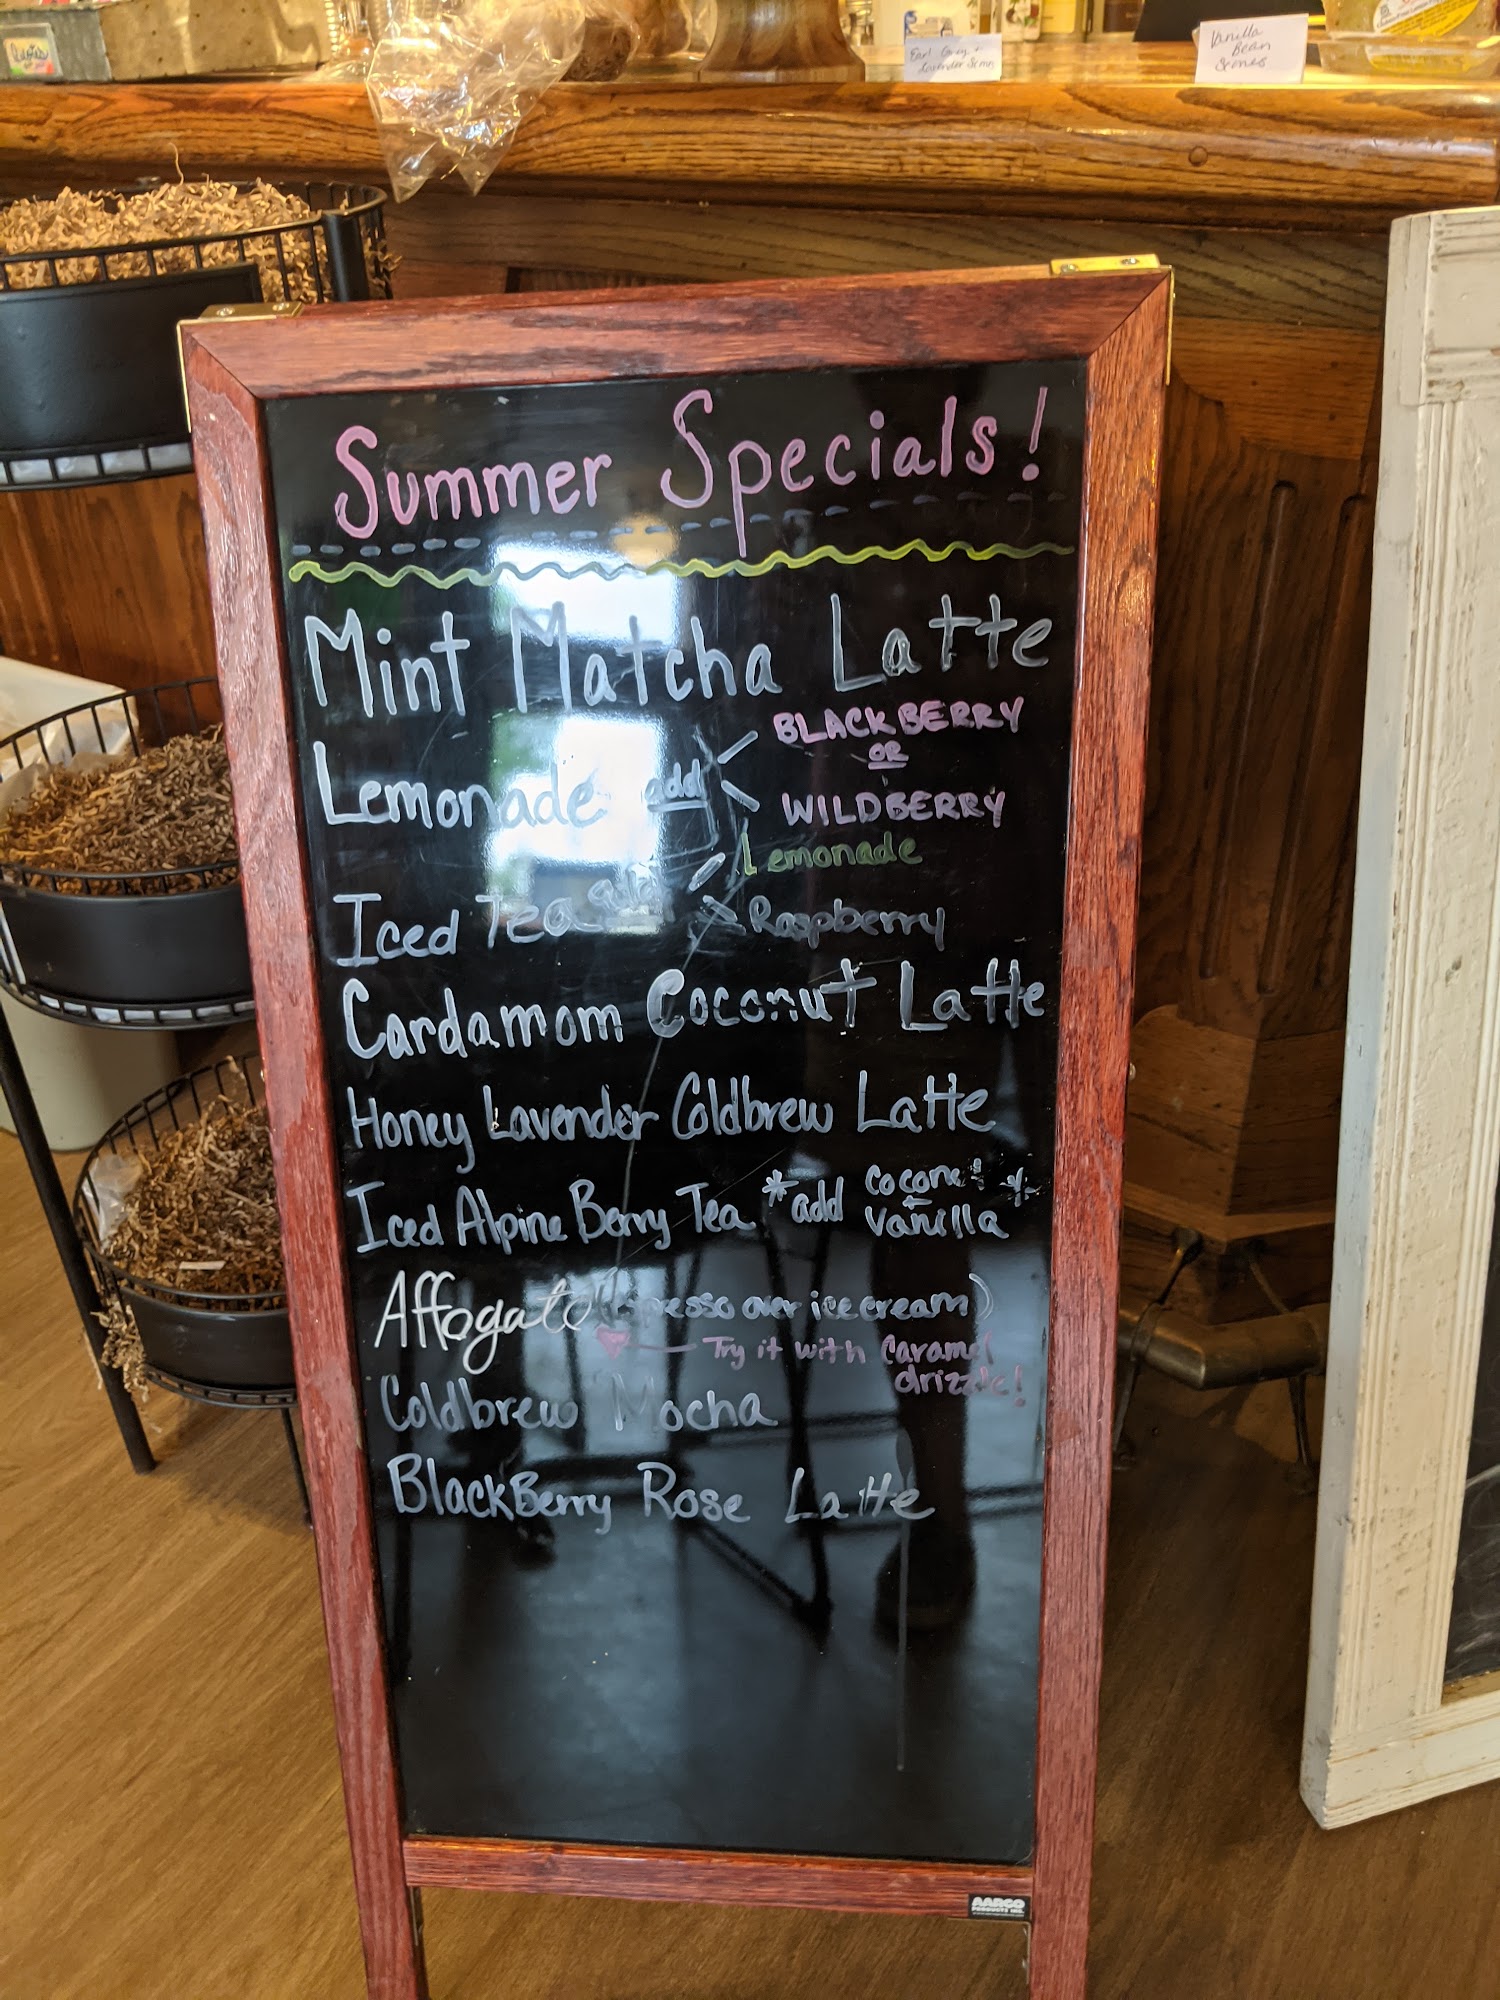 Earl Grey +
Lavender Scones
Vanilla
Bean
Scones
Summer Specials!
Mint Matcha Latte
Lemonade add BLACKBERRY
OR
WILDBERRY
Iced Tea add Lemonade
Raspberry
Cardamom Coconut Latte
Honey Lavender Coldbrew Latte
Iced Alpine Berry Tea *add coconut +
vanilla*
Affogato (espresso over ice cream)
Try it with caramel
drizzle!
Coldbrew Mocha
BlackBerry Rose Latte
AARCO
PRODUCTS INC.